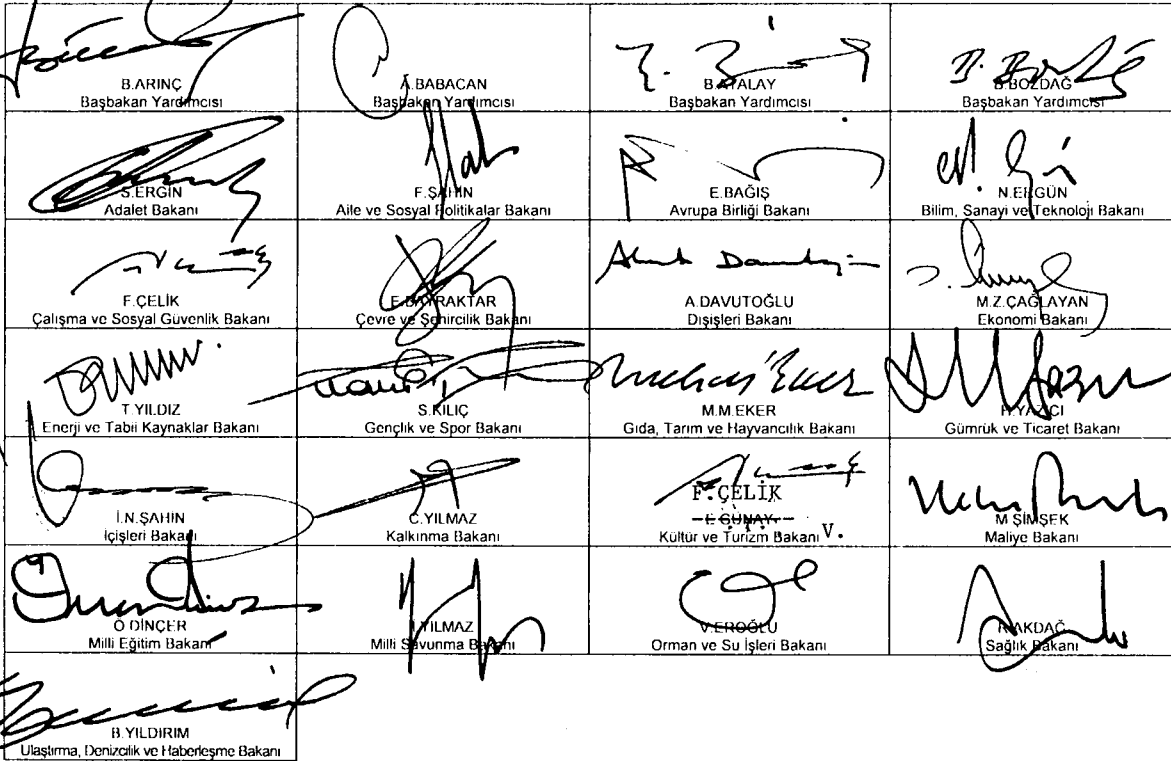 B.ARINÇ
Başbakan Yardımcısı
A.BABACAN
Başbakan Yardımcısı
B.ATALAY
Başbakan Yardımcısı
B.BOZDAĞ
Başbakan Yardımcısı
S.ERGİN
Adalet Bakanı
F.ŞAHİN
Aile ve Sosyal Politikalar Bakanı
E.BAĞIŞ
Avrupa Birliği Bakanı
N.ERGÜN
Bilim, Sanayi ve Teknoloji Bakanı
F.ÇELİK
Çalışma ve Sosyal Güvenlik Bakanı
E.BAYRAKTAR
Çevre ve Şehircilik Bakanı
A.DAVUTOĞLU
Dışişleri Bakanı
M.Z.ÇAĞLAYAN
Ekonomi Bakanı
T.YILDIZ
Enerji ve Tabii Kaynaklar Bakanı
S.KILIÇ
Gençlik ve Spor Bakanı
M.M.EKER
Gıda, Tarım ve Hayvancılık Bakanı
H.YAZICI
Gümrük ve Ticaret Bakanı
İ.N.ŞAHİN
İçişleri Bakanı
C.YILMAZ
Kalkınma Bakanı
F.ÇELİK
E.GÜNAY
Kültür ve Turizm Bakanı V.
M.ŞİMŞEK
Maliye Bakanı
Ö.DİNÇER
Milli Eğitim Bakanı
İ.YILMAZ
Milli Savunma Bakanı
V.EROĞLU
Orman ve Su İşleri Bakanı
R.AKDAĞ
Sağlık Bakanı
B.YILDIRIM
Ulaştırma, Denizcilik ve Haberleşme Bakanı